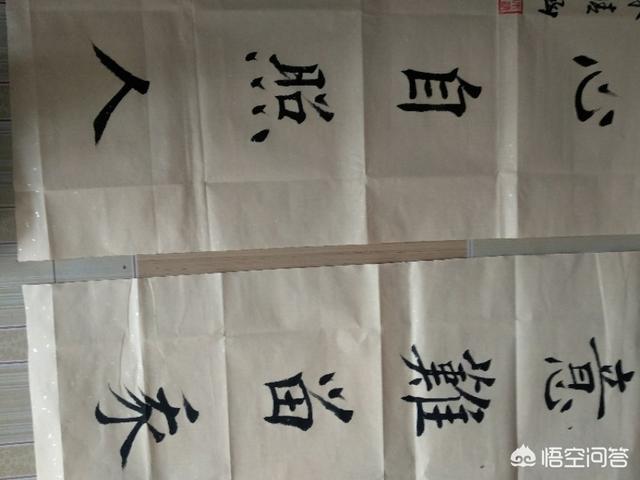 意難留我
心自照人
悟空问答